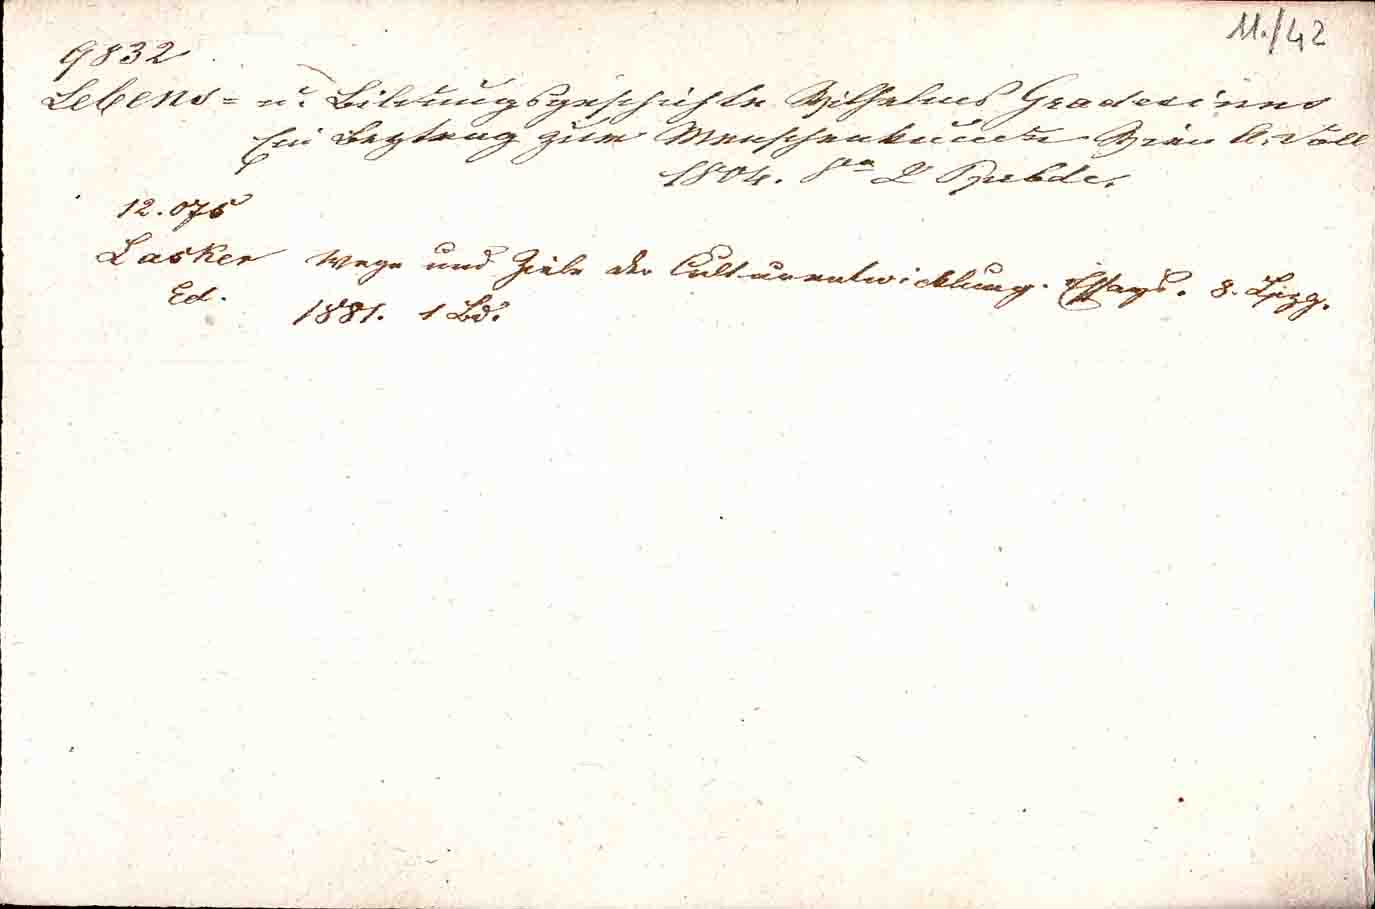 11./42
9832
Lebens- u. Bildungsgeschichte Wilhelms Gradesinns
Ein Beytrag zur Menschenkunde Wien A. Doll
1804. 8° 2 Hbde.
12.075
Lasker Wege und Ziele der Culturentwicklung. Essays. 8. Lpzg.
Ed. 1881. 1 Bd.